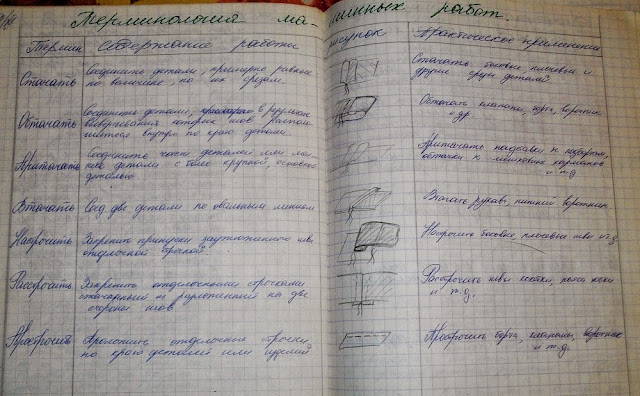 Терминология машинных работ.
Термин Содержание работы Рисунок Практическое применение
Стачать Соединить детали, примерно равные
по величине, по их срезам.
Стачать боковые, плечевые и
другие срезы деталей
Обтачать Соединить детали, в результате
вывертывания которых шов располо-
гается внутри по краю детали.
Обтачать клапаны, борта, воротник
и др
Притачать Соединить части деталей или мел-
кие детали с более крупной основной
деталью
Притачать надставки к подбортам,
обтачки к карманов
и т.д
Втачать Соед две детали по овальным линиям
Втачать рукава, нижний воротник
Настрочить Закрепить припуски заутюженного шва
отделочной строчкой
Настрочить боковые, плечевые швы и т.д
Расстрочить Закрепить отделочными строчками
стачанный и разложенный на две
стороны шов
Расстрочить швы кокетки, пояса юбки
и т.д.
Прострочить Проложить отделочную строчку
по краю деталей или изделий
Прострочить борта, клапаны, воротник
и т.д.